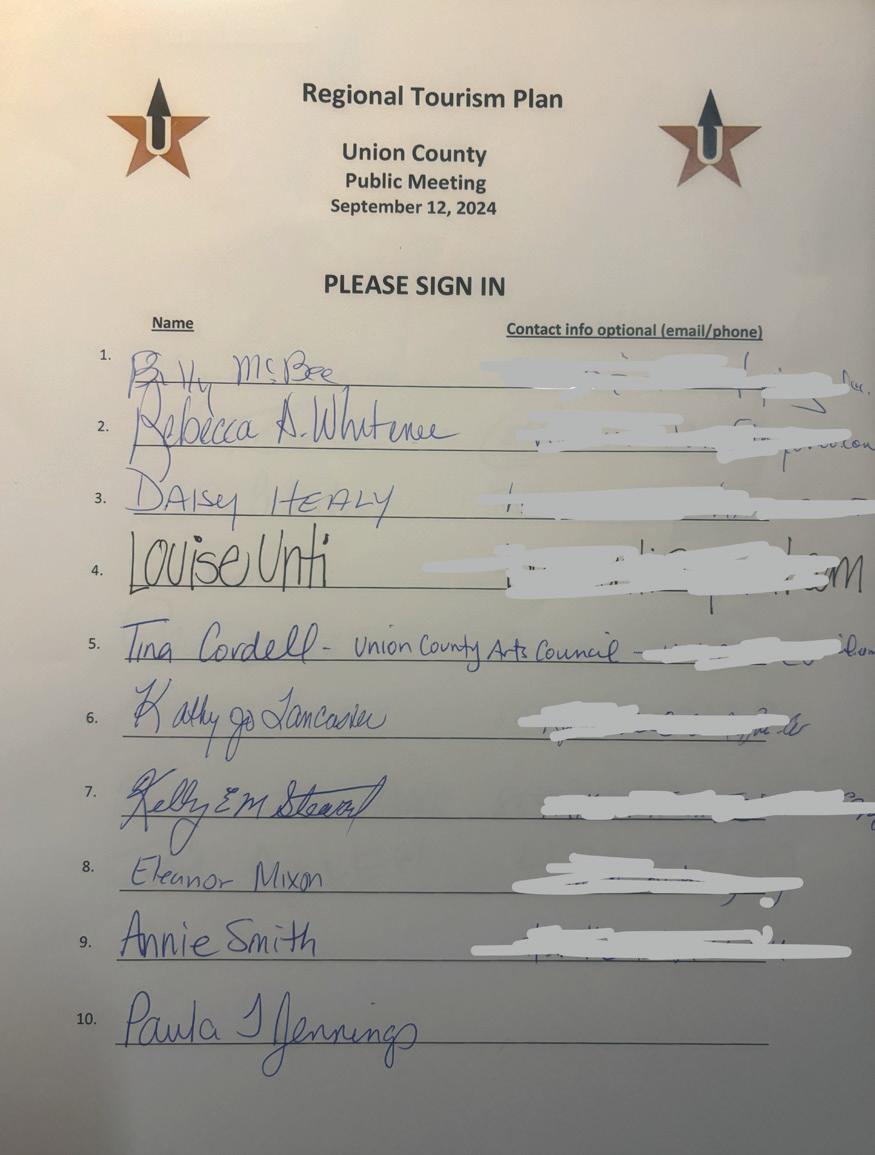 Regional Tourism Plan
U
U
Union County
Public Meeting
September 12, 2024
PLEASE SIGN IN
Name Contact info optional (email/phone)
1. Billy McBee
2. Rebecca A. Whitener
3. DAISY HEALY
4. Louise Unti
5. Tina Cordell - Union County Arts Council -
6. Kathy Jo Lancaster
7. Kelly E M Stewart
8. Eleanor Mixon
9. Annie Smith
10. Paula J Jennings